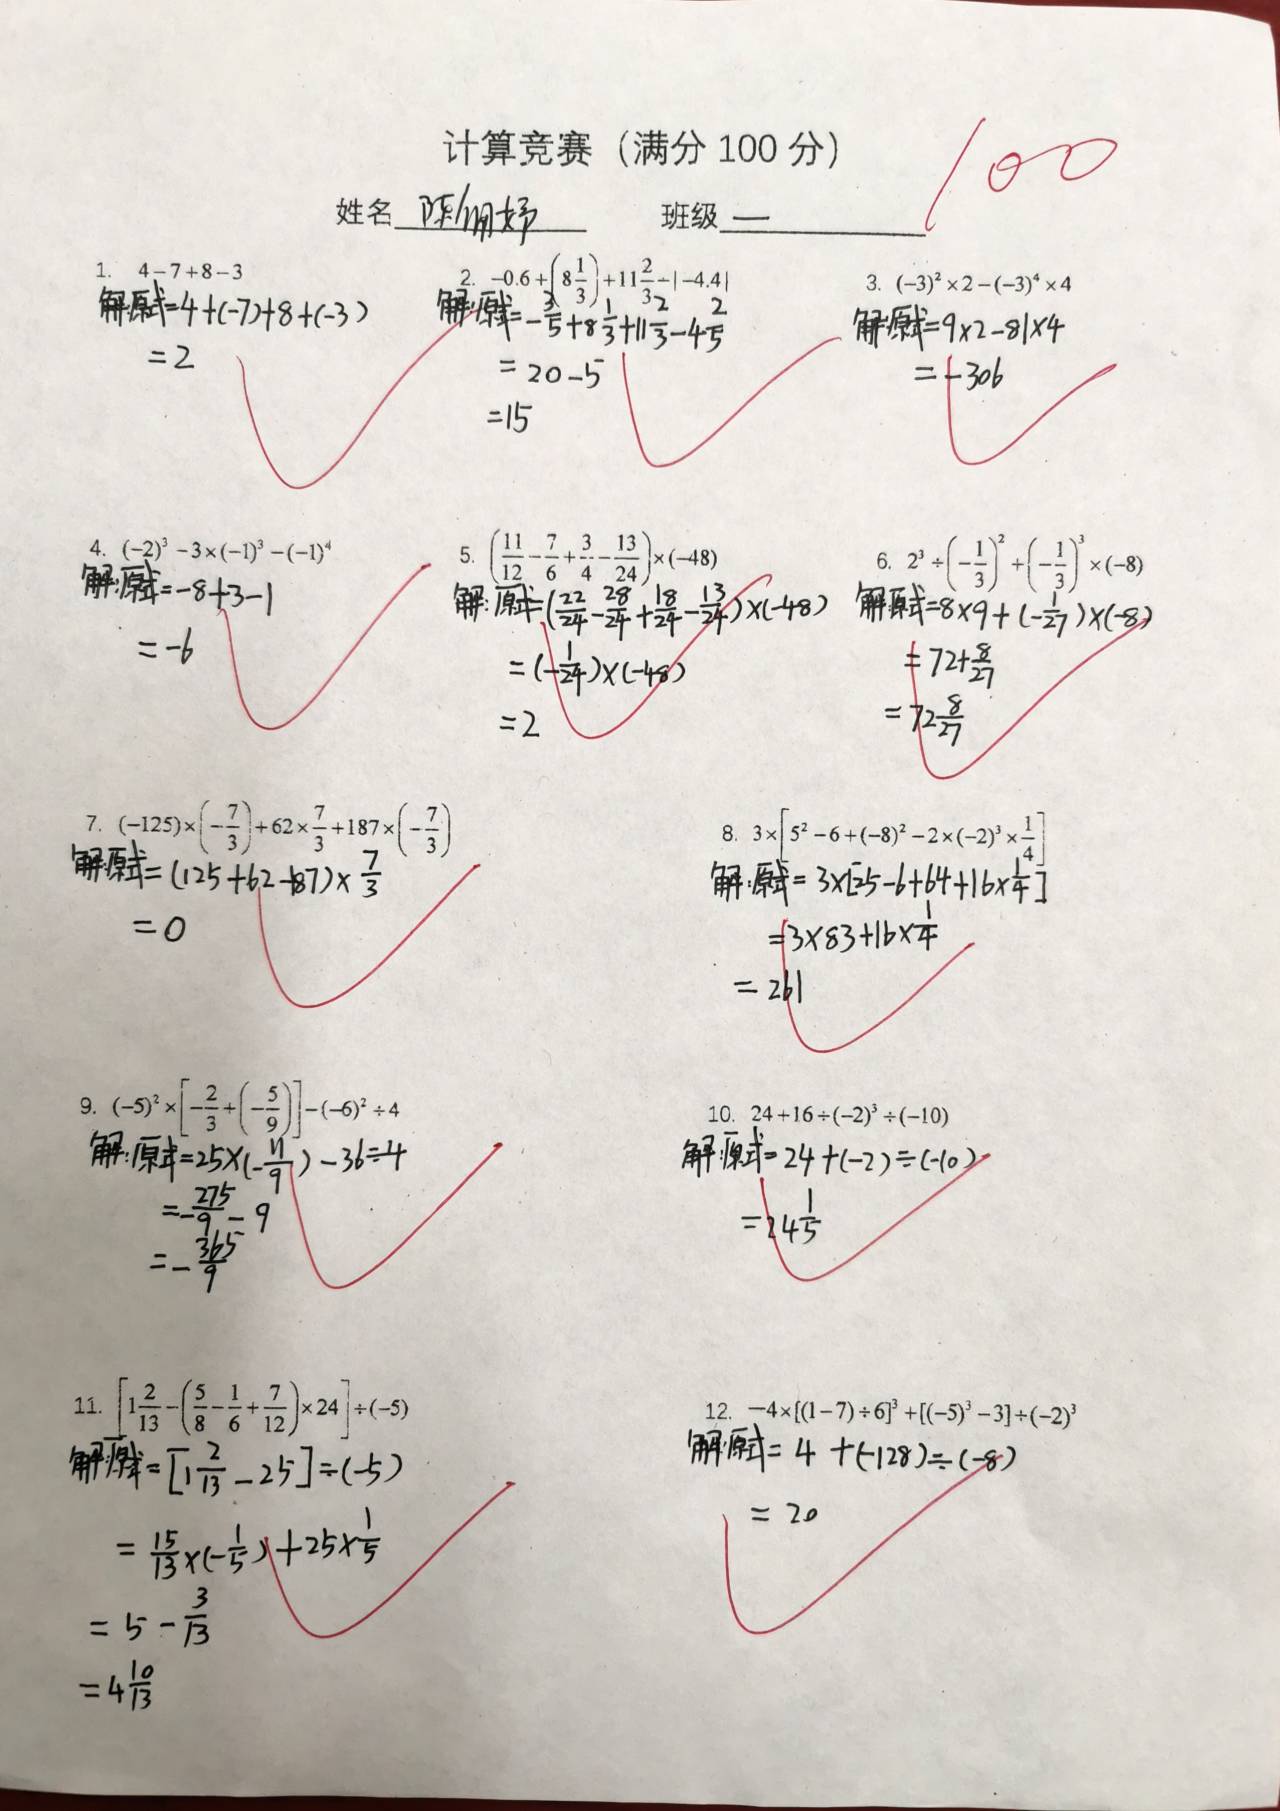 计算竞赛（满分 100 分）
100
姓名 陈 妤 班级 一
1. 4-7+8-3
解:原式=4+(-7)+8+(-3)
=2
2. -0.6+(8 1/3)+11 2/3-|-4.4|
解:原式=-3/5+8 1/3+11 2/3-4 2/5
=20-5
=15
3. (-3)²×2-(-3)⁴×4
解:原式=9×2-81×4
=-306
4. (-2)³-3×(-1)³-(-1)⁴
解:原式=-8+3-1
=-6
5. (11/12-7/6+3/4-13/24)×(-48)
解:原式=(22/24-28/24+18/24-13/24)×(-48)
=(-1/24)×(-48)
=2
6. 2³÷(-1/3)²+(-1/3)³×(-8)
解:原式=8×9+(-1/27)×(-8)
=72+8/27
=72 8/27
7. (-125)×(-7/3)+62×7/3+187×(-7/3)
解:原式=(125+62-187)×7/3
=0
8. 3×[5²-6+(-8)²-2×(-2)³×1/4]
解:原式=3×[25-6+64+16×1/4]
=3×83+16×1/4
=261
9. (-5)²×[-2/3+(-5/9)]-(-6)²÷4
解:原式=25×(-11/9)-36÷4
=-275/9-9
=-365/9
10. 24+16÷(-2)³÷(-10)
解:原式=24+(-2)÷(-10)
=24 1/5
11. [1 2/13-(5/8-1/6+7/12)×24]÷(-5)
解:原式=[1 2/13-25]÷(-5)
=15/13×(-1/5)+25×1/5
=5-3/13
=4 10/13
12. -4×[(1-7)÷6]³+[(-5)³-3]÷(-2)³
解:原式=4+(-128)÷(-8)
=20